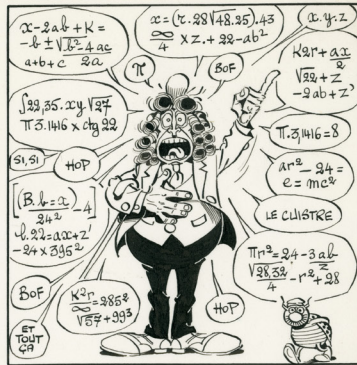 x-2ab+K=
-b±√b²-4ac
a+b+c 2a
x=(r.28√48.25).43
∞/4 ×z.+22-ab²
x.y.z
π
BOF
K2r+ax
√22+z
-2ab+z'
∫22,35.xy.√27
π3.1416×ctg22
π.3,1416=8
SI,SI
HOP
ar²-24=
e=mc²
[(B.b=x)/24² -4]
-b.22=ax+z'
-24×395²
LE CUISTRE
πr²=24-3ab/z
√28,32/4 -r²+28
BOF
K²r/∞ =285²
√57+993
HOP
ET
TOUT
ÇA